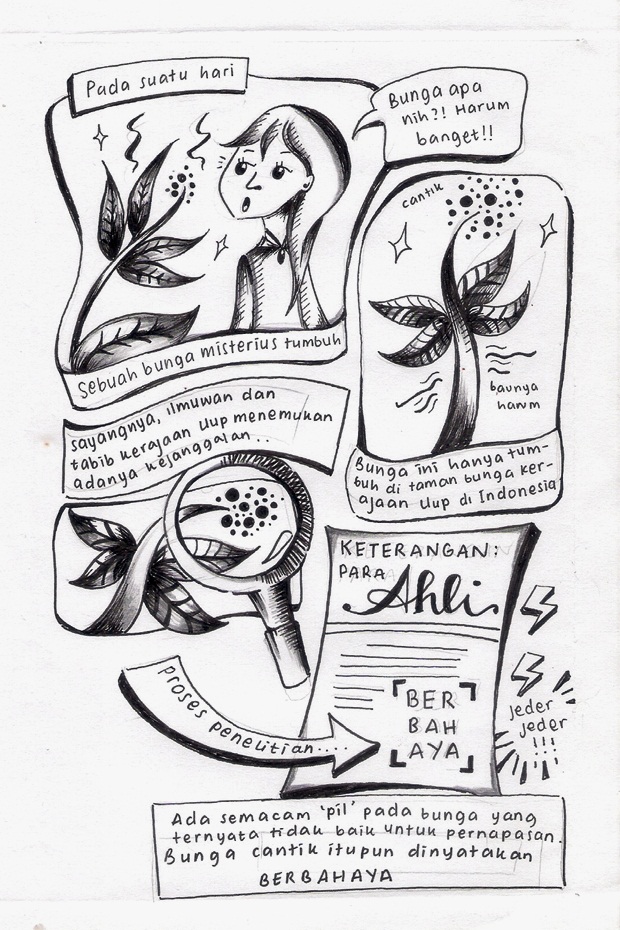 Pada suatu hari
Bunga apa
nih?! Harum
banget!!
Sebuah bunga misterius tumbuh
cantik
baunya
harum
Bunga ini hanya tum-
buh di taman bunga ker-
ajaan Uup di Indonesia
sayangnya, ilmuwan dan
tabib kerajaan Uup menemukan
adanya kejanggalan...
KETERANGAN:
PARA
Ahli
BER
BAH
AYA
jeder
jeder
!!!
Proses penelitian....
Ada semacam 'pil' pada bunga yang
ternyata tidak baik untuk pernapasan.
Bunga cantik itupun dinyatakan
BERBAHAYA